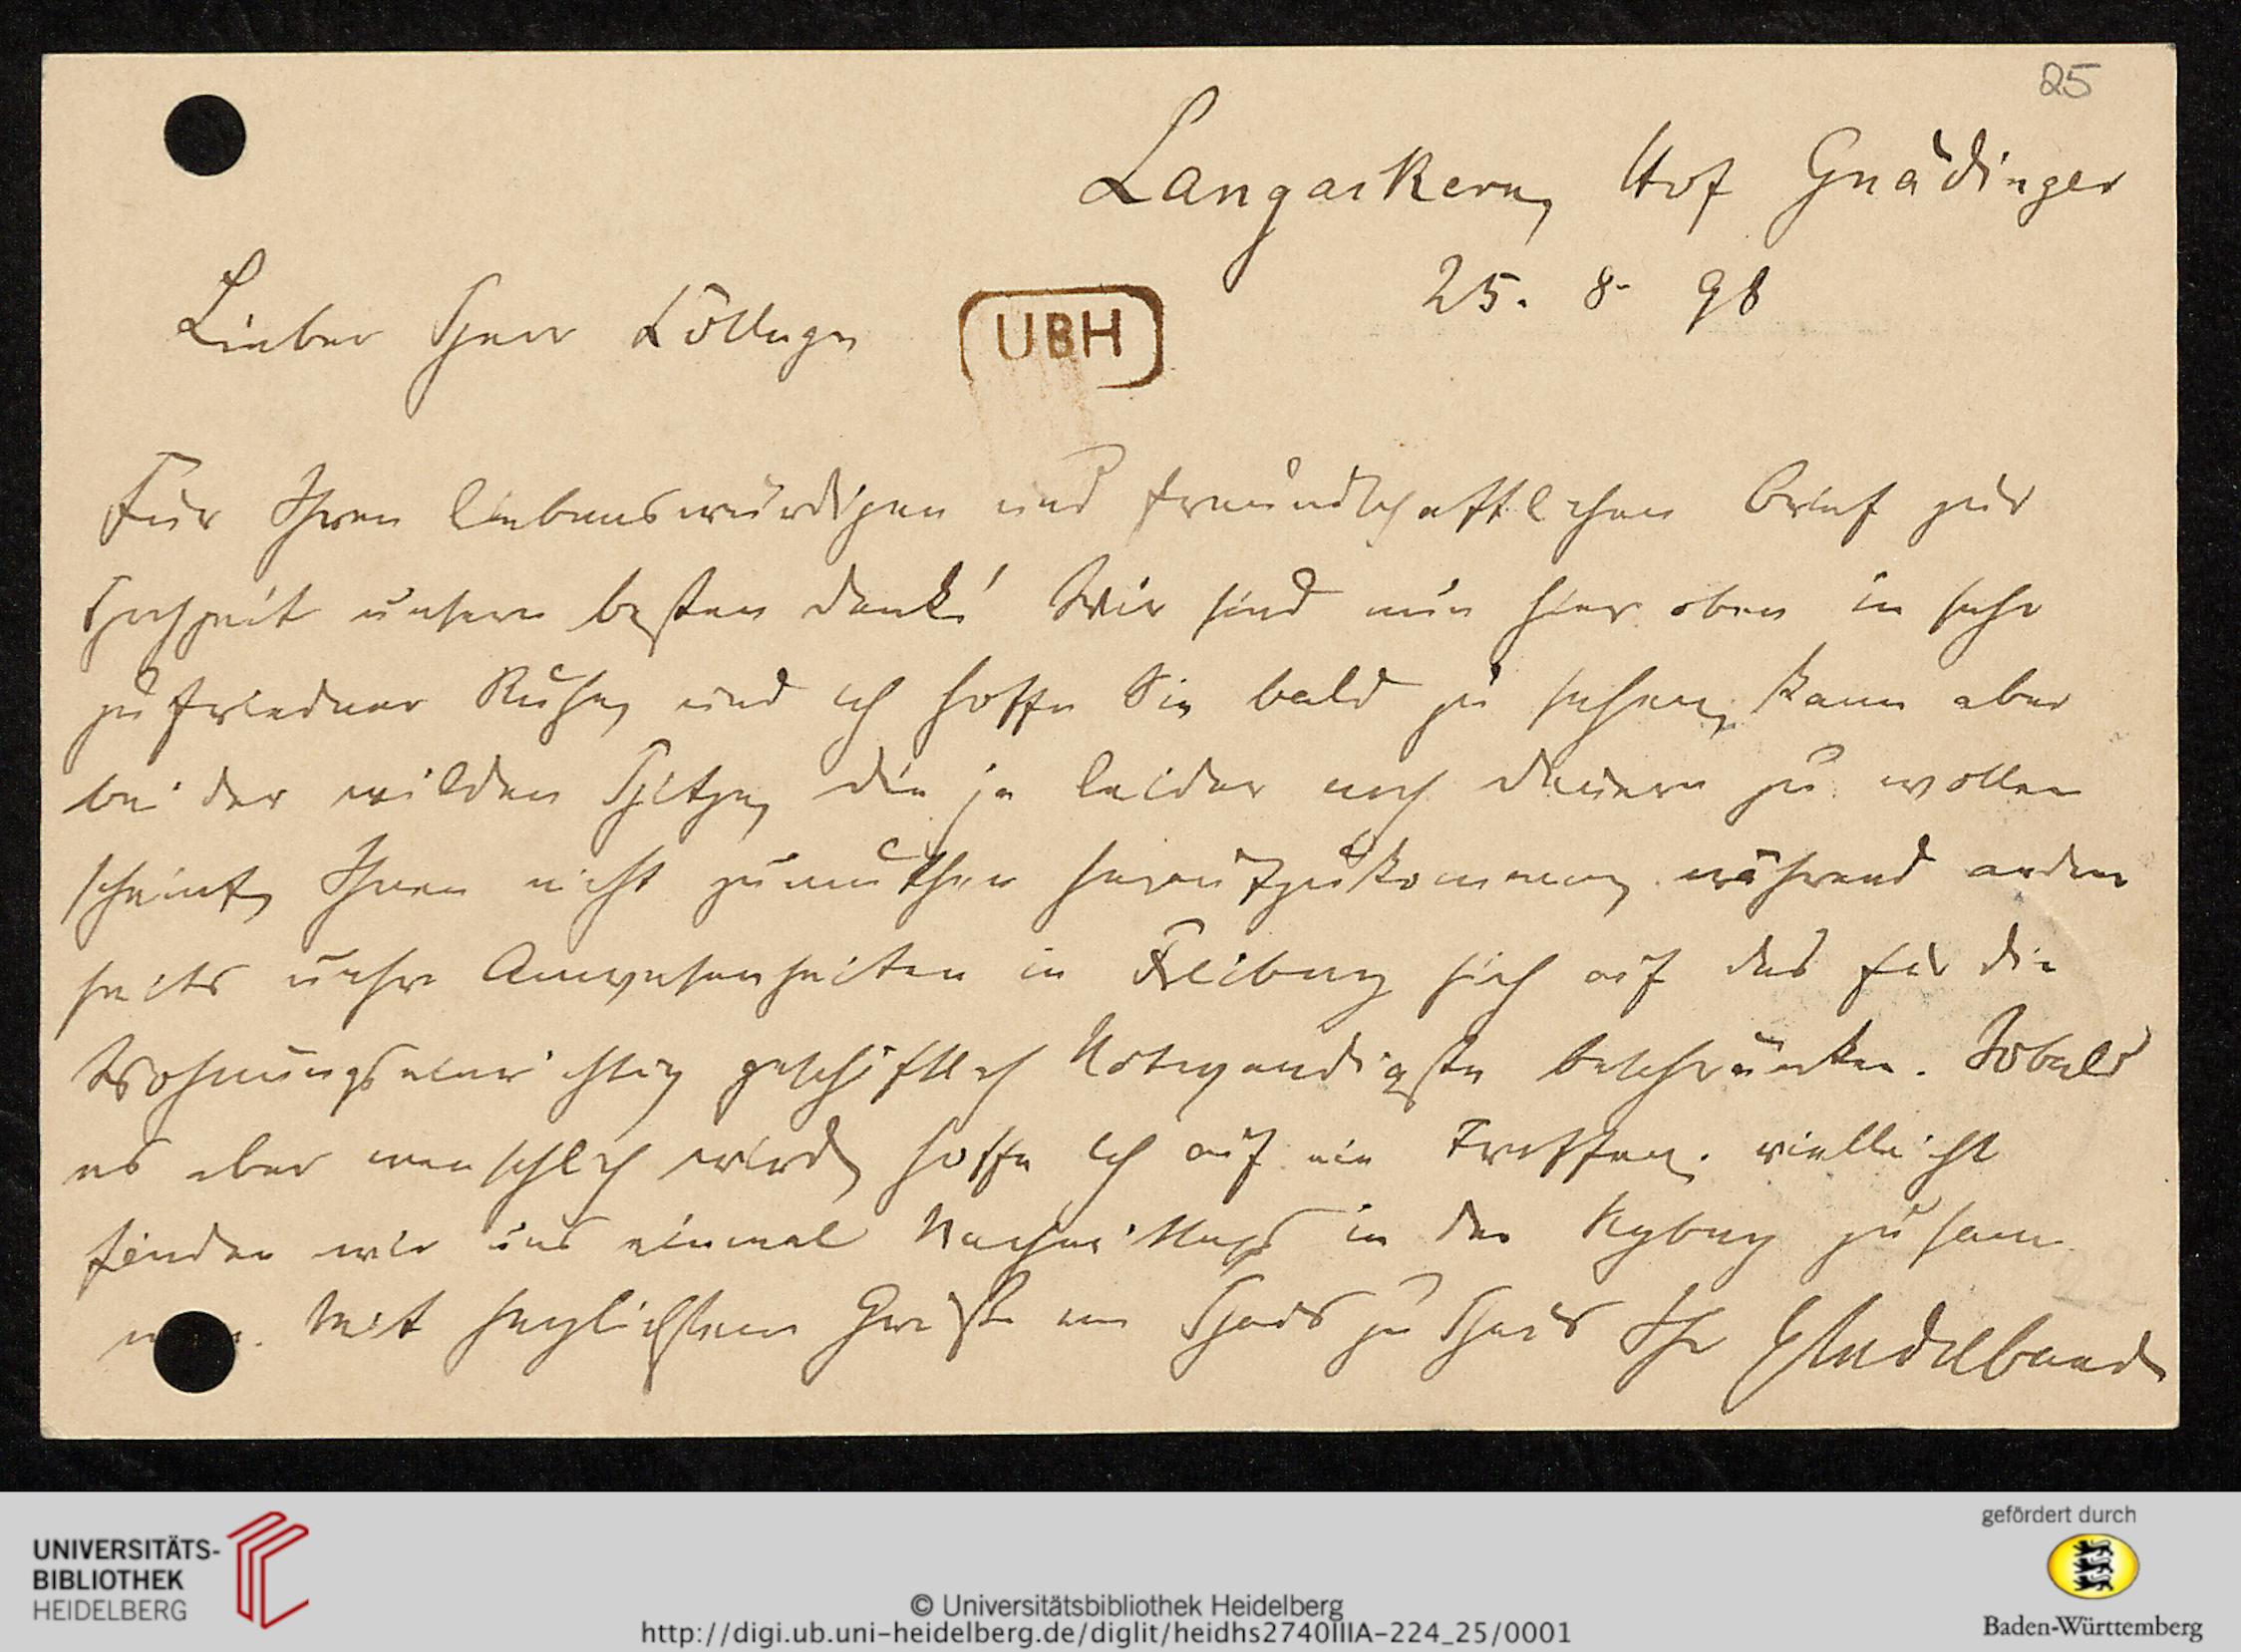 25
Langackern, Hof Gnädinger
25. 8. 98
Lieber Herr College
UBH
Für Ihren liebenswürdigen und freundschaftlichen Brief zur
Hochzeit unsern besten Dank! Wir sind nun hier oben in sehr
zufriedner Ruhe, und ich hoffe Sie bald zu sehen, kann aber
bei der wilden Hitze, die ja leider noch dauern zu wollen
scheint, Ihnen nicht zumuthen heraufzukommen, während andrer
seits unsre Anwesenheiten in Freiburg sich auf das für die
Wohnungseinrichtung geschäftlich Notwendigste beschränken. Sobald
es aber menschlich wird, hoffe ich auf ein Treffen. vielleicht
finden wir uns einmal Nachmittags in der Kyburg zusam
men. Mit herzlichstem Gruße von Haus zu Haus Ihr Windelband
UNIVERSITÄTS-
BIBLIOTHEK
HEIDELBERG
© Universitätsbibliothek Heidelberg
http://digi.ub.uni-heidelberg.de/diglit/heidhs2740IIIA-224_25/0001
gefördert durch
Baden-Württemberg